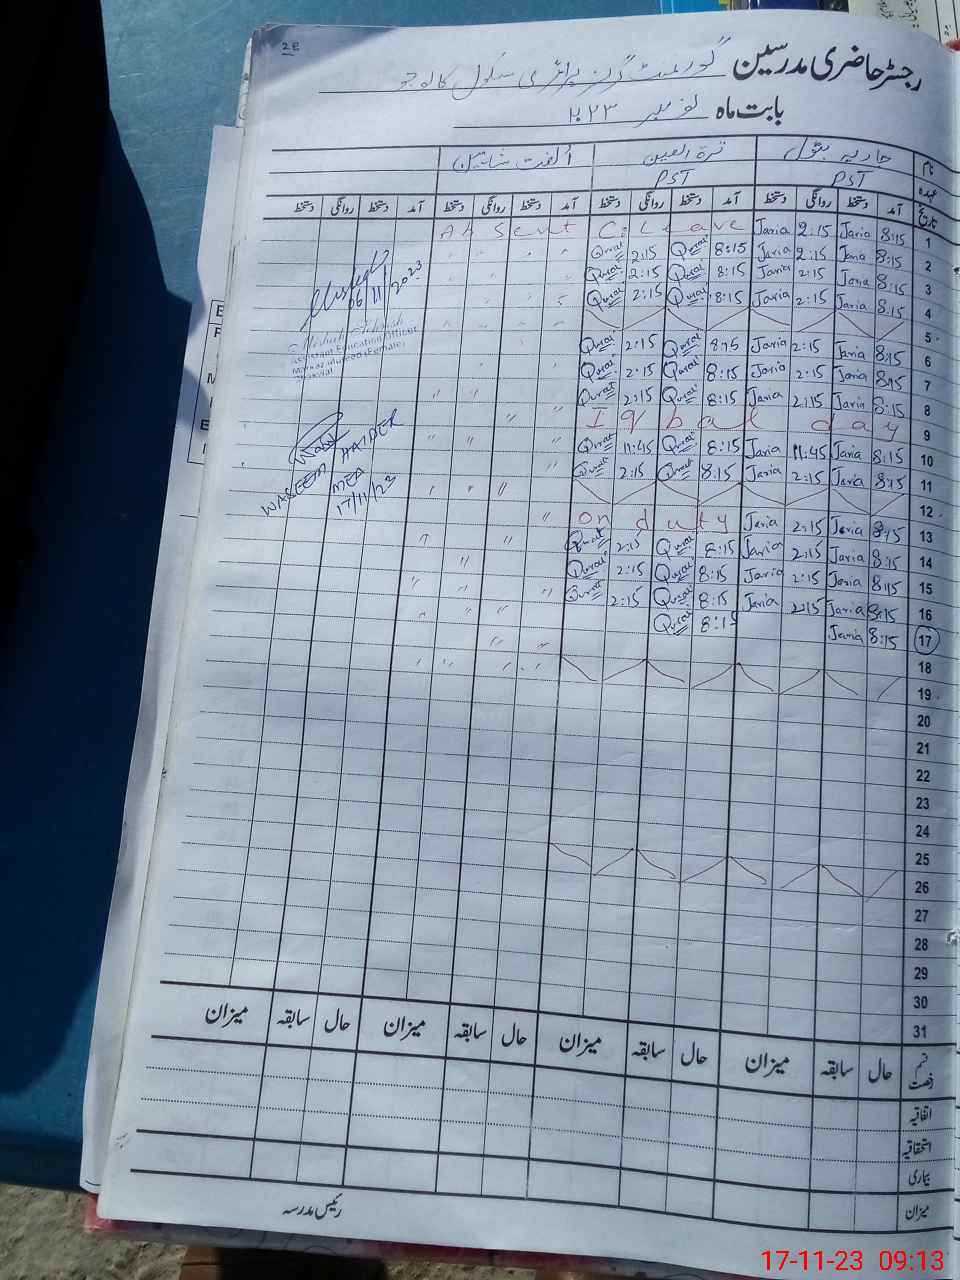 28
رجسٹر حاضری مدرسین گورنمنٹ گرلز پرائمری سکول کالوجو
بابت ماہ نومبر ۲۰۲۳
نام جاریہ بتول قرۃ العین الفت شاہین
عہدہ PST PST
تاریخ آمد دستخط روانگی دستخط آمد دستخط روانگی دستخط آمد دستخط روانگی دستخط آمد دستخط روانگی دستخط
Absent C.Leave Jaria 2:15 Jaria 8:15 1
Qurat 2:15 Qurat 8:15 Jaria 2:15 Jaria 8:15 2
Qurat 2:15 Qurat 8:15 Jaria 2:15 Jaria 8:15 3
Qurat 2:15 Qurat 8:15 Jaria 2:15 Jaria 8:15 4
5
Qurat 2:15 Qurat 8:15 Jaria 2:15 Jaria 8:15 6
Qurat 2:15 Qurat 8:15 Jaria 2:15 Jaria 8:15 7
Qurat 2:15 Qurat 8:15 Jaria 2:15 Jaria 8:15 8
Iqbal day 9
Qurat 11:45 Qurat 8:15 Jaria 11:45 Jaria 8:15 10
Qurat 2:15 Qurat 8:15 Jaria 2:15 Jaria 8:15 11
12
on duty Jaria 2:15 Jaria 8:15 13
Qurat 2:15 Qurat 8:15 Jaria 2:15 Jaria 8:15 14
Qurat 2:15 Qurat 8:15 Jaria 2:15 Jaria 8:15 15
Qurat 2:15 Qurat 8:15 Jaria 2:15 Jaria 8:15 16
Qurat 8:15 Jaria 8:15 17
18
19
20
21
22
23
24
25
26
27
28
29
30
31
06/11/2023
Assistant Education Officer
Markaz (Female)
WASEEM HAIDER
MEA
17/11/23
قسم رخصت حال سابقہ میزان حال سابقہ میزان حال سابقہ میزان حال سابقہ میزان
اتفاقیہ
استحقاقیہ
بیماری
میزان
رئیس مدرسہ
17-11-23 09:13